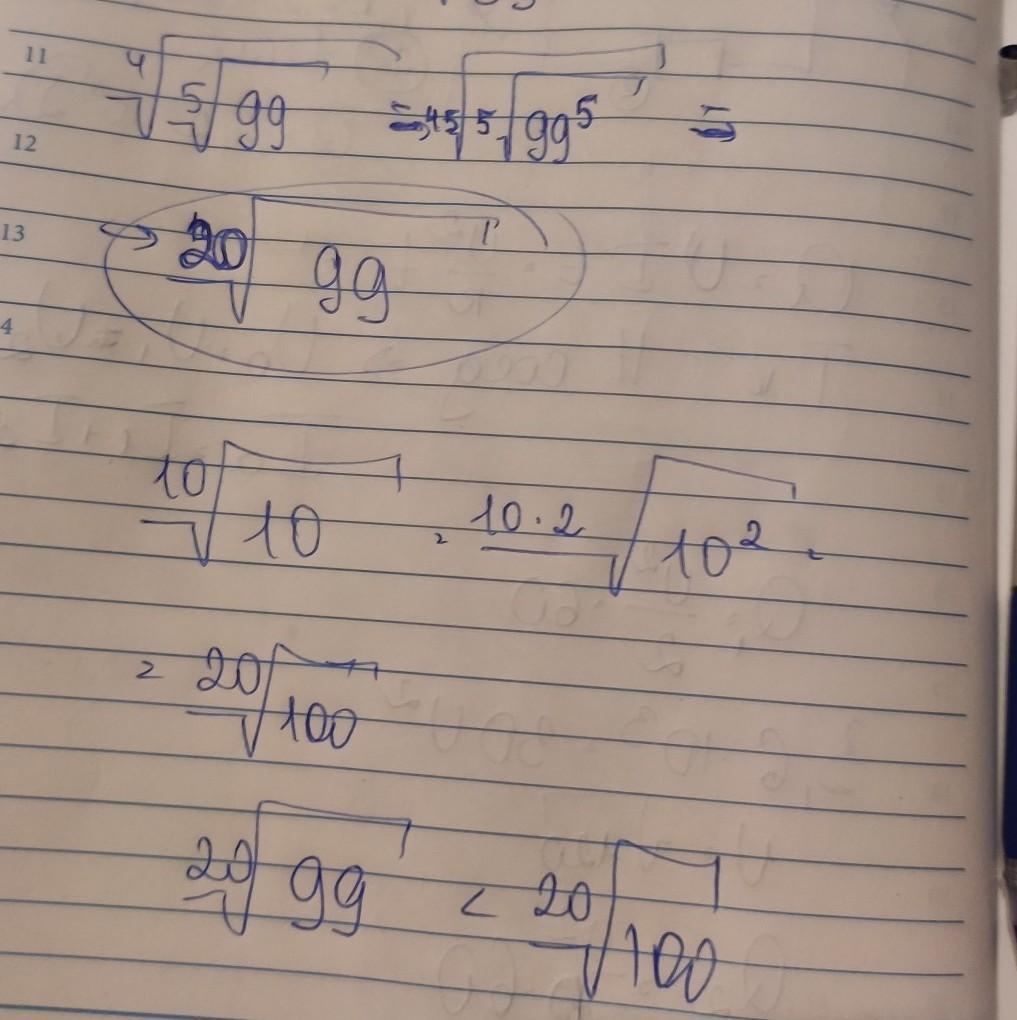 11
⁴√(⁵√99) = ⁴⁵√(⁵√99⁵) =
12
13
→ ²⁰√99
4
¹⁰√10 = ¹⁰·²√10² =
= ²⁰√100
²⁰√99 < ²⁰√100